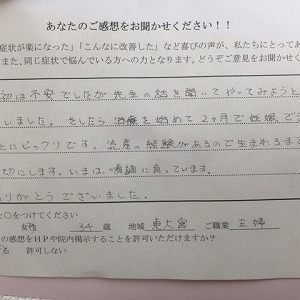 あなたのご感想をお聞かせください！！
症状が楽になった」「こんなに改善した」など喜びの声が、私たちにとってあ
また、同じ症状で悩んでいる方への力となります。どうぞご意見をお聞かせく
初は不安でしたが先生の話を聞いてやってみようと
いました。そしたら治療を始めて2ヶ月で妊娠でき
とにビックリです。流産の経験があるので生まれるまで
切にします。いまは、順調に育っています。
りがとうございました。
と○をつけてください
女性 34歳 地域 東大宮 ご職業 主婦
の感想をHPや院内掲示することを許可いただけますか？
する 許可しない